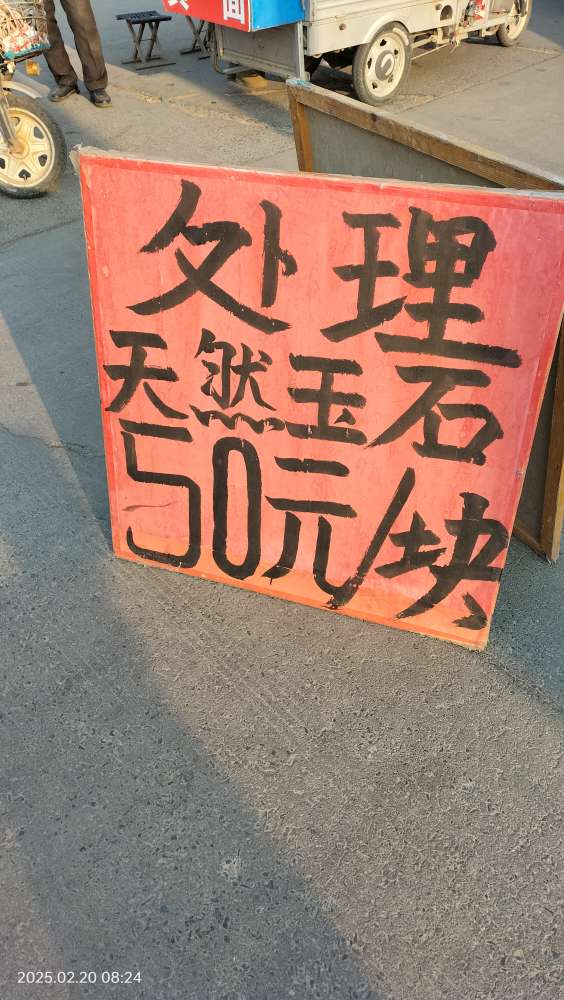 面
处理
天然玉石
50元/块
2025.02.20 08:24